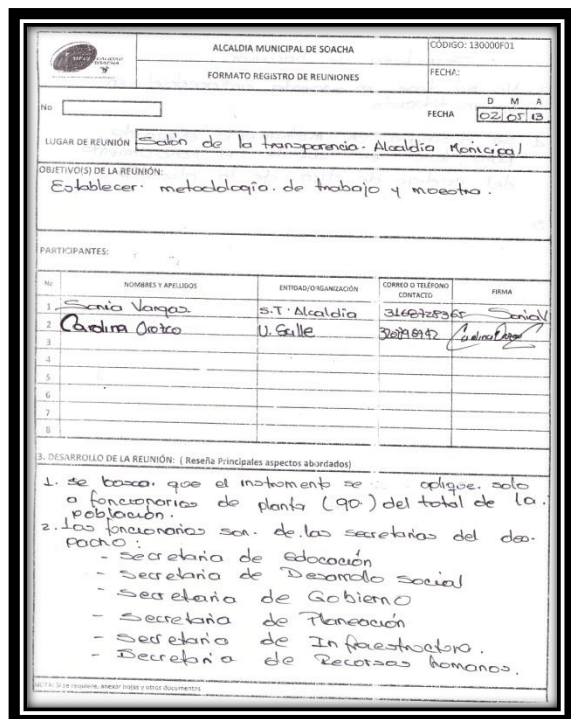 CALIDAD
SOACHA
ALCALDIA MUNICIPAL DE SOACHA
CÓDIGO: 130000F01
FORMATO REGISTRO DE REUNIONES
FECHA:
No
D M A
FECHA 02 05 13
LUGAR DE REUNIÓN Salón de la transparencia. Alcaldia Municipal
OBJETIVO(S) DE LA REUNIÓN:
Establecer. metodología. de trabajo y muestra.
PARTICIPANTES:
No NOMBRES Y APELLIDOS ENTIDAD/ORGANIZACIÓN CORREO O TELÉFONO CONTACTO FIRMA
1 Sonia Vargas S.T. Alcaldia 3168728365 Sonia V
2 Carolina Orozco U. Salle
3
4
5
6
7
8
3. DESARROLLO DE LA REUNIÓN: ( Reseña Principales aspectos abordados)
1. se busca. que el instrumento se aplique. solo
a funcionarios de planta (90.) del total de la.
población.
2. Los funcionarios son. de. las secretarias del des-
pacho :
- Secretaria de educación
- Secretaria de Desarrollo Social
- Secretaria de Gobierno
- Secretaria de Planeación
- Secretaria de Infraestructura.
- Secretaria de Recursos humanos.
NOTA: Si se requiere, anexar hojas y otros documentos